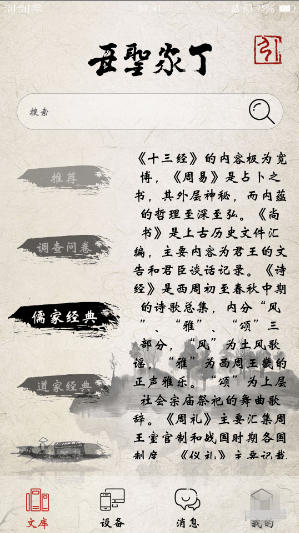 吾聖家丁
搜索
推荐
调查问卷
儒家经典
道家经典
《十三经》的内容极为宽
博，《周易》是占卜之
书，其外层神秘，而内蕴
的哲理至深至弘。《尚
书》是上古历史文件汇
编，主要内容为君王的文
告和君臣谈话记录。《诗
经》是西周初至春秋中期
的诗歌总集，内分“风
”、“雅”、“颂”三
部分，“风”为土风歌
谣，“雅”为西周王畿的
正声雅乐，“颂”为上层
社会宗庙祭祀的舞曲歌
辞。《周礼》主要汇集周
王室官制和战国时期各国
制度。《仪礼》主要记载
文库
设备
消息
我的